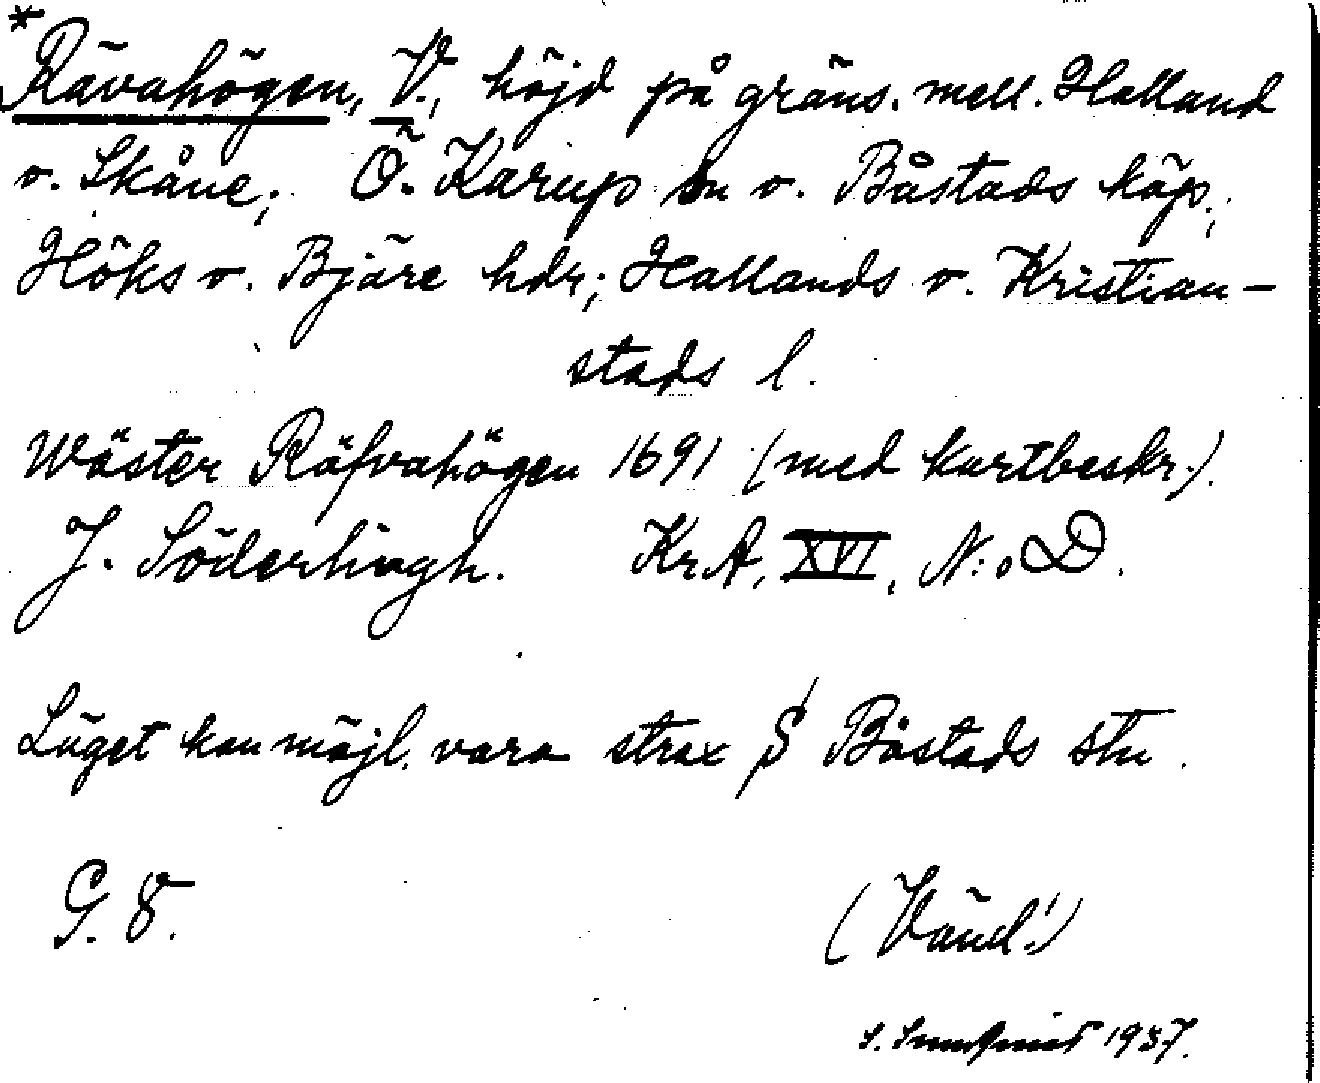 *Rävahögen, V., höjd på gräns. mell. Halland
o. Skåne; Ö. Karup sn o. Båstads köp.;
Höks o. Bjäre hdr; Hallands o. Kristian-
stads l.
Wäster Räfvahögen 1691 (med kartbeskr.).
J. Söderlingh. KrA, XVI, N:o D.
Läget kan möjl. vara strax S Båstads stn.
G. 8.
(Vänd!)
S. Sundqvist 1937.